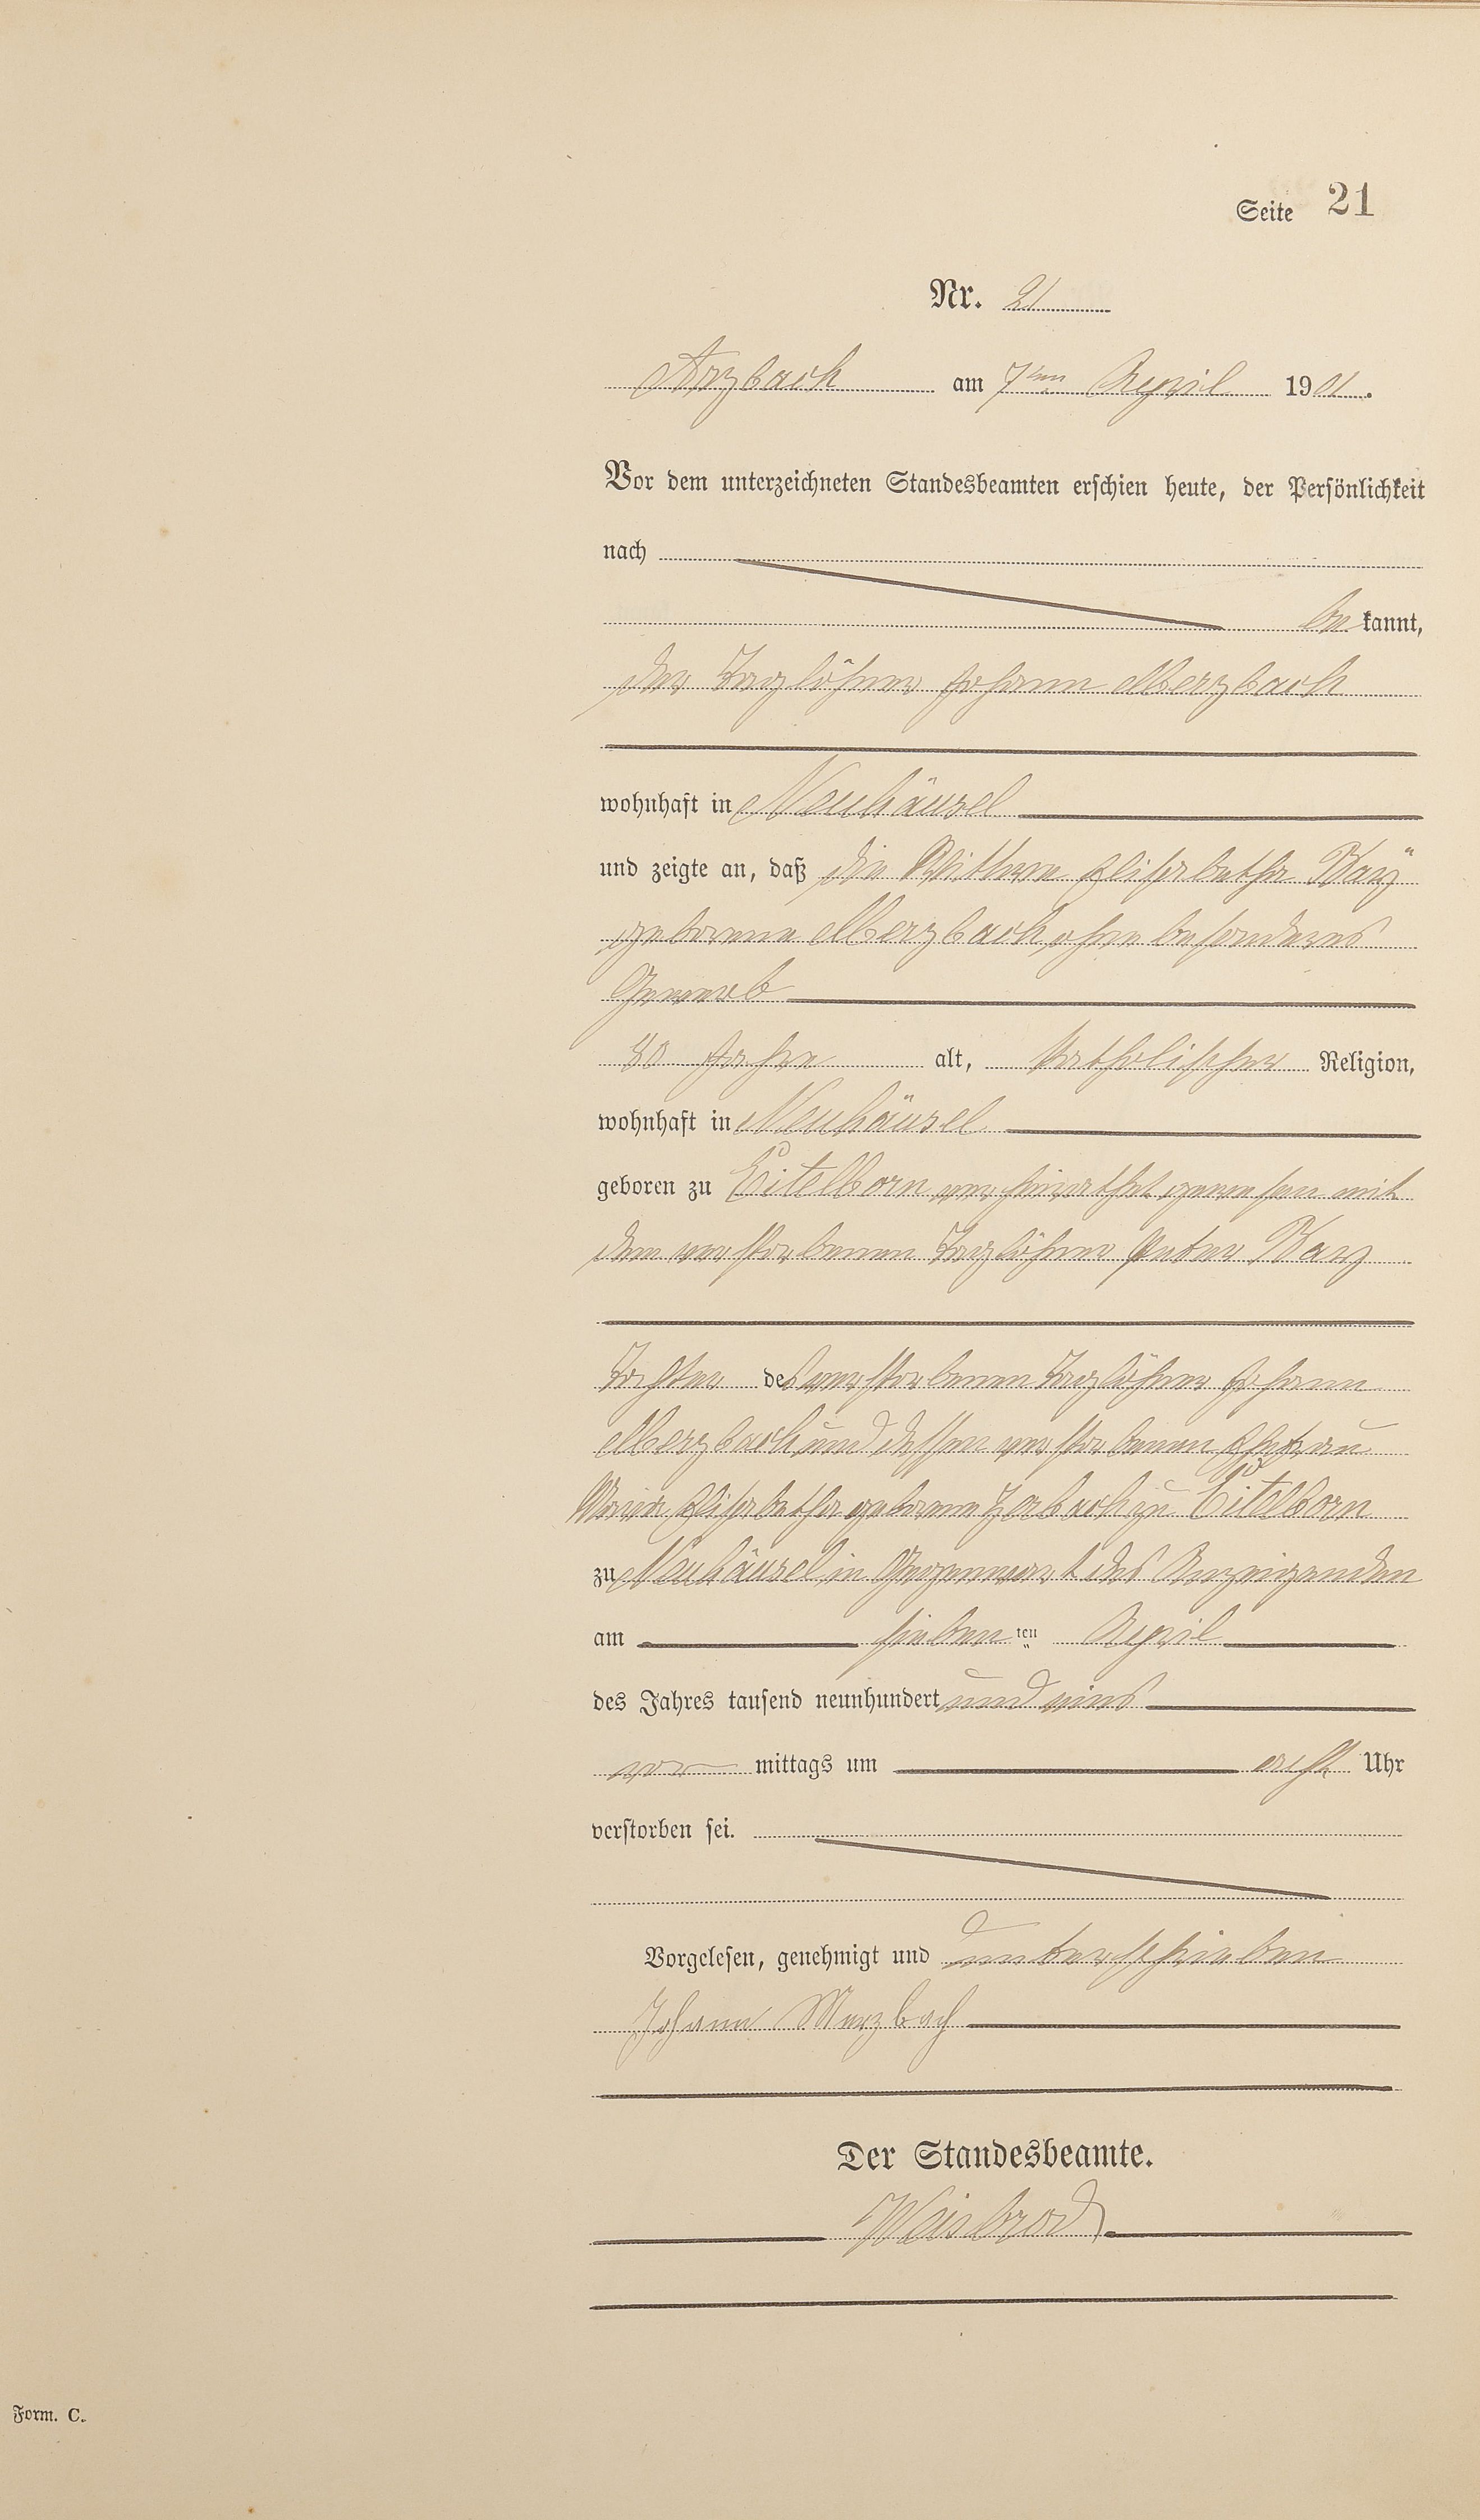 Seite 21
Nr. 21
Arzbach am 7ten April 1901.
Vor dem unterzeichneten Standesbeamten erschien heute, der Persönlichkeit
nach
bekannt,
der Taglöhner Johann Merzbach
wohnhaft in Neuhäusel
und zeigte an, daß die Wittwe Elisabetha
geborene Merzbach, ohne besonderes
Gewerb
80 Jahre alt, katholischer Religion,
wohnhaft in Neuhäusel
geboren zu Eitelborn verheirathet gewesen mit
dem verstorbenen Taglöhner Peter
Tochter des verstorbenen Taglöhner Johann
Merzbach und dessen verstorbenen Ehefrau
Maria Elisabetha geborene Zerbach zu Eitelborn
zu Neuhäusel in Gegenwart des Anzeigenden
am siebenten April
des Jahres tausend neunhundert und eins
vormittags um acht Uhr
verstorben sei.
Vorgelesen, genehmigt und unterschrieben
Johann Merzbach
Der Standesbeamte.
Weisbrod
Form. C.